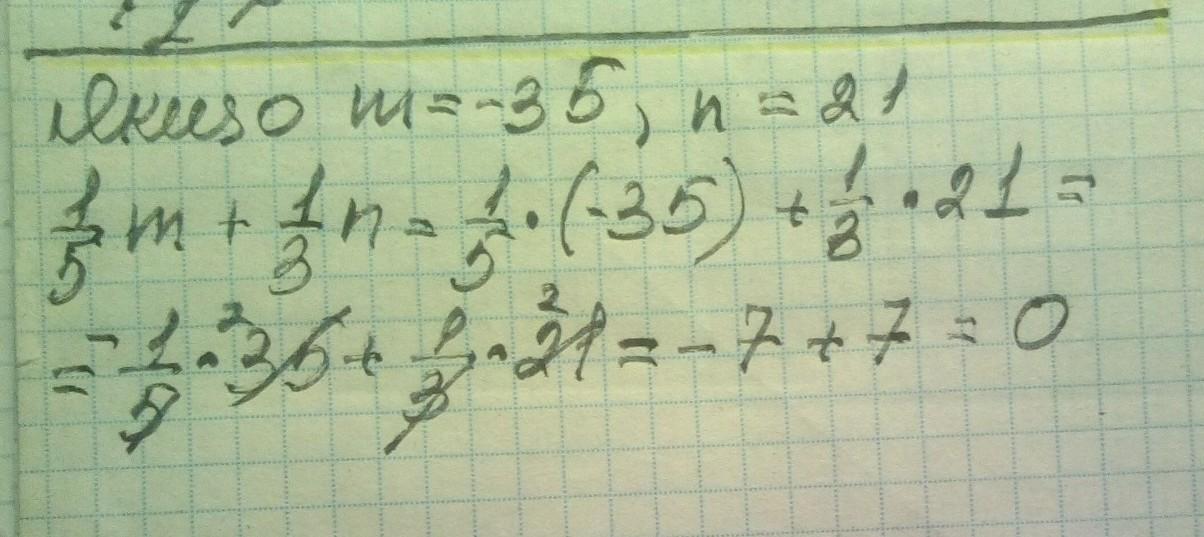 Якщо m=-35, n=21
1/5 m + 1/3 n = 1/5 · (-35) + 1/3 · 21 =
= - 1/5 · 35 + 1/3 · 21 = -7 + 7 = 0